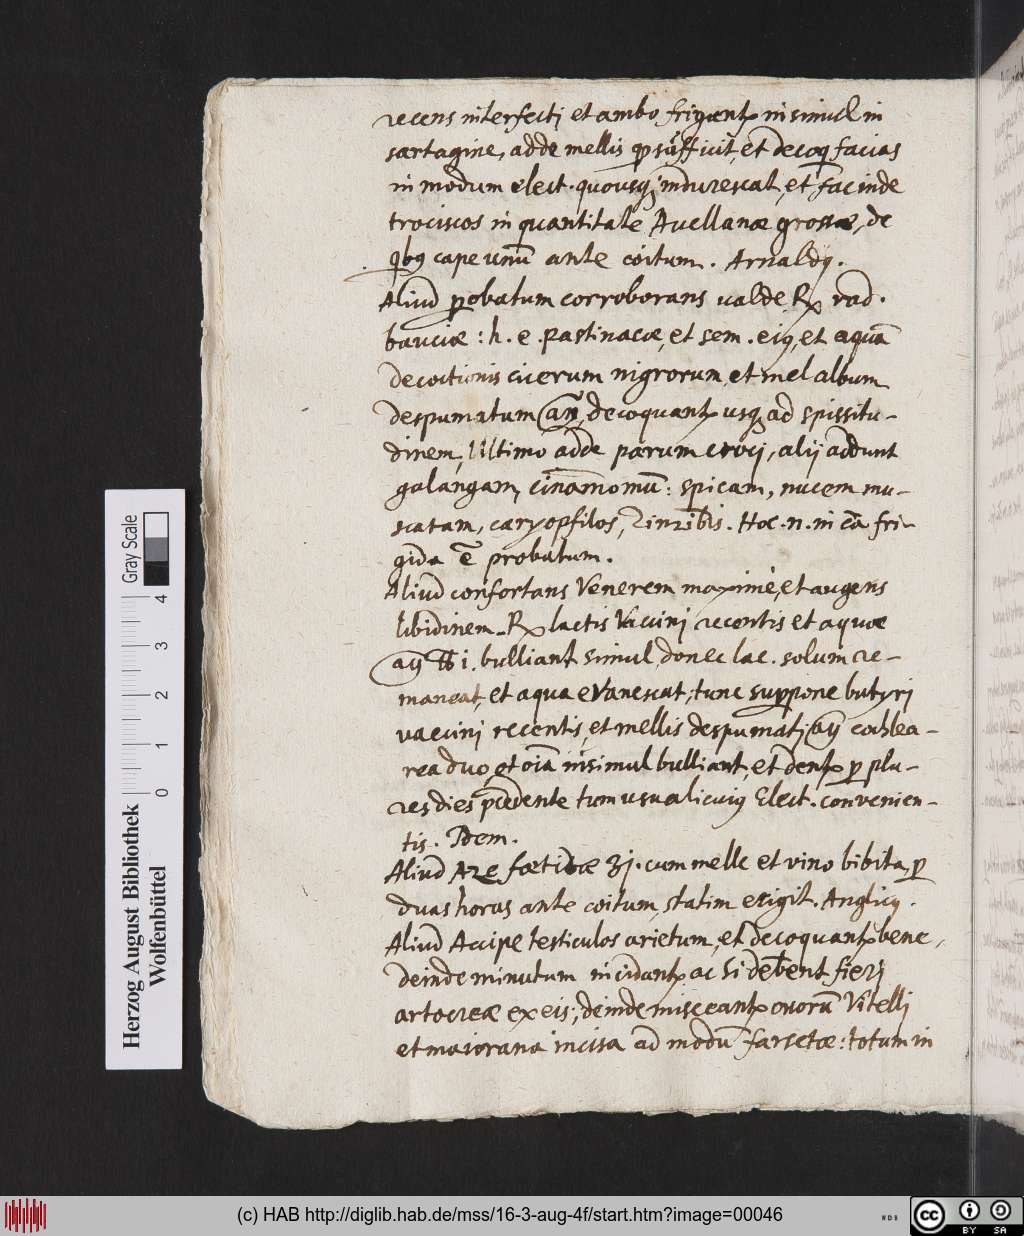 recens interfecti et ambo frigant insimul in
sartagine, adde mellis q sufficit, et decoq facias
in modum elect. quousq indurescat, et fac inde
trociscos in quantitate Avellanæ grossæ, de
qbꝰ cape unū ante coitum. Arnaldꝰ.
Aliud probatum corroborans valde ℞ rad.
bauciæ : h. e. pastinacæ, et sem. eiꝰ, et aquā
decoctionis cicerum nigrorum et mel album
despumatum añ, decoquant usq ad spissitu-
dinem, Ultimo adde parum croci, alij addunt
galangam, cinamomū: spicam, nucem mu-
scatam, caryopfilos, Zinzibis. Hoc .n. in cā fri-
gida ē probatum.
Aliud confortans Venerem maximè, et augens
libidinem. ℞ lactis Vaccini recentis et aquæ
añ ℔ i. bulliant simul, donec lac. solum re-
maneat, et aqua evanescat; tunc suppone butyri
vaccini recentis, et mellis despumati añ cochlea-
rea duo, et oīa insimul bulliant, et dent p plu-
res dies pcedente tum usu alicuiꝰ Elect. convenien-
tis. Idem.
Aliud Azæ fœtidæ ʒj. cum melle et vino bibita, p
duas horas ante coitum, statim erigit. Anglicꝰ.
Aliud Accipe testiculos arietum, et decoquant bene,
deinde minutum incidant ac si debent fieri
artocreæ ex eis; deinde misceant ovorū Vitelli
et maiorana incisa ad modū farsetæ: totum in
Herzog August Bibliothek
Wolfenbüttel
0 1 2 3 4
Gray Scale
(c) HAB http://diglib.hab.de/mss/16-3-aug-4f/start.htm?image=00046
WDB
cc BY SA